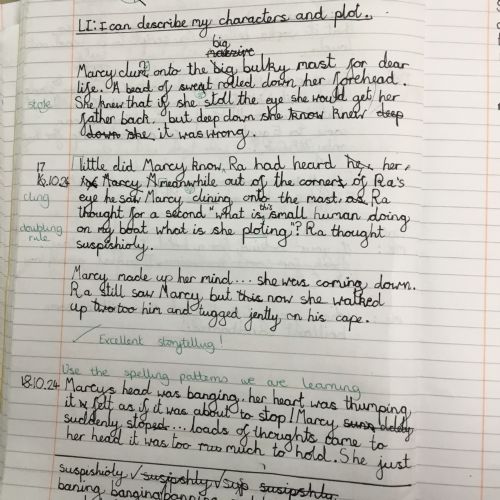 LI: I can describe my characters and plot.
big
massive
Marcy clung onto the big bulky mast for dear
life. A bead of sweat rolled down her forehead.
She knew that if she stoll the eye she would get her
stole
father back, but deep down she know knew deep
down she it was wrong.
17
little did Marcy know, Ra had heard her,
18.10.24
Marcy Meanwhile out of the corners of Ra's
cling
eye he saw Marcy clining onto the mast. as Ra
thought for a second "what is this small human doing
doubling
rule
on my boat what is she ploting"? Ra thought
suspishioly.
Marcy made up her mind... she was coming down.
Ra still saw Marcy but this now she walked
up two too him and tugged jently on his cape.
✓ Excellent storytelling!
Use the spelling patterns we are learning
18.10.24
Marcys head was banging, her heart was thumping
it felt as if it was about to stop! Marcy
suddenly stoped... loads of thoughts came to
her head it was too much to hold. She just
suspishioly ✓ susipshly ✓ susp susipshly
baning banging